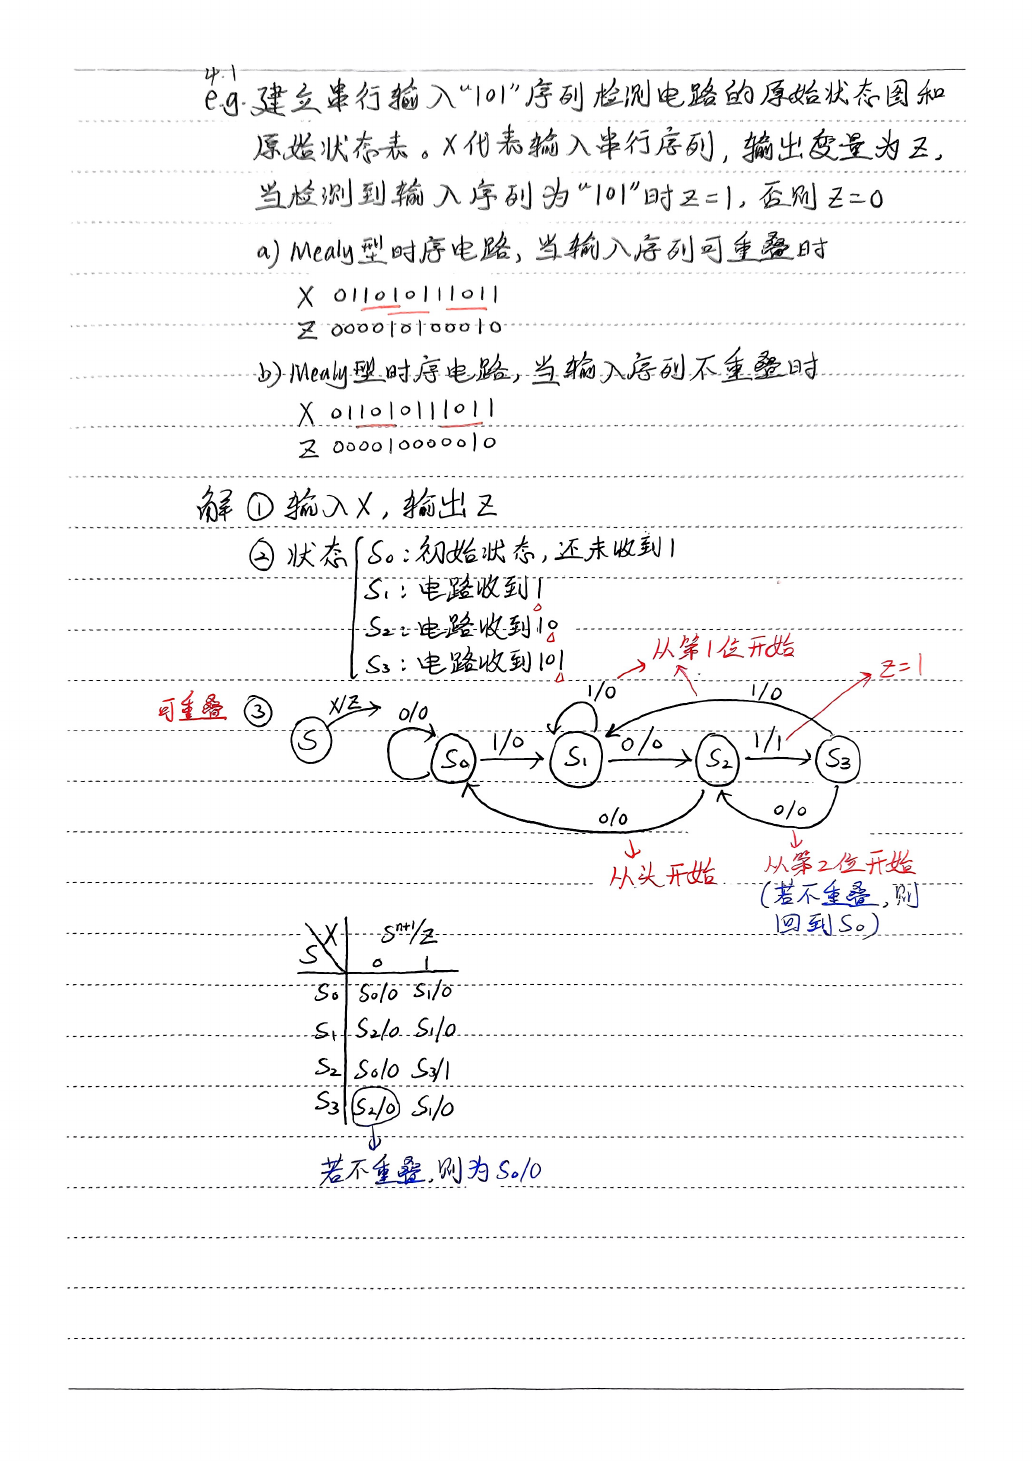 4.1
e.g. 建立串行输入“101”序列检测电路的原始状态图和
原始状态表。X代表输入串行序列，输出变量为Z，
当检测到输入序列为“101”时Z=1，否则Z=0
a) Mealy型时序电路，当输入序列可重叠时
X 011010111011
Z 000010100010
b) Mealy型时序电路，当输入序列不重叠时
X 011010111011
Z 000010000010
解 ① 输入X，输出Z
② 状态 S₀：初始状态，还未收到1
S₁：电路收到1
S₂：电路收到10
S₃：电路收到101
从第1位开始
Z=1
可重叠 ③
S X/Z
0/0 1/0 1/0
S₀ 1/0 S₁ 0/0 S₂ 1/1 S₃
0/0 0/0
从头开始 从第2位开始
(若不重叠，则
回到S₀)
X Sⁿ⁺¹/Z
S 0 1
S₀ S₀/0 S₁/0
S₁ S₂/0 S₁/0
S₂ S₀/0 S₃/1
S₃ S₂/0 S₁/0
若不重叠，则为S₀/0